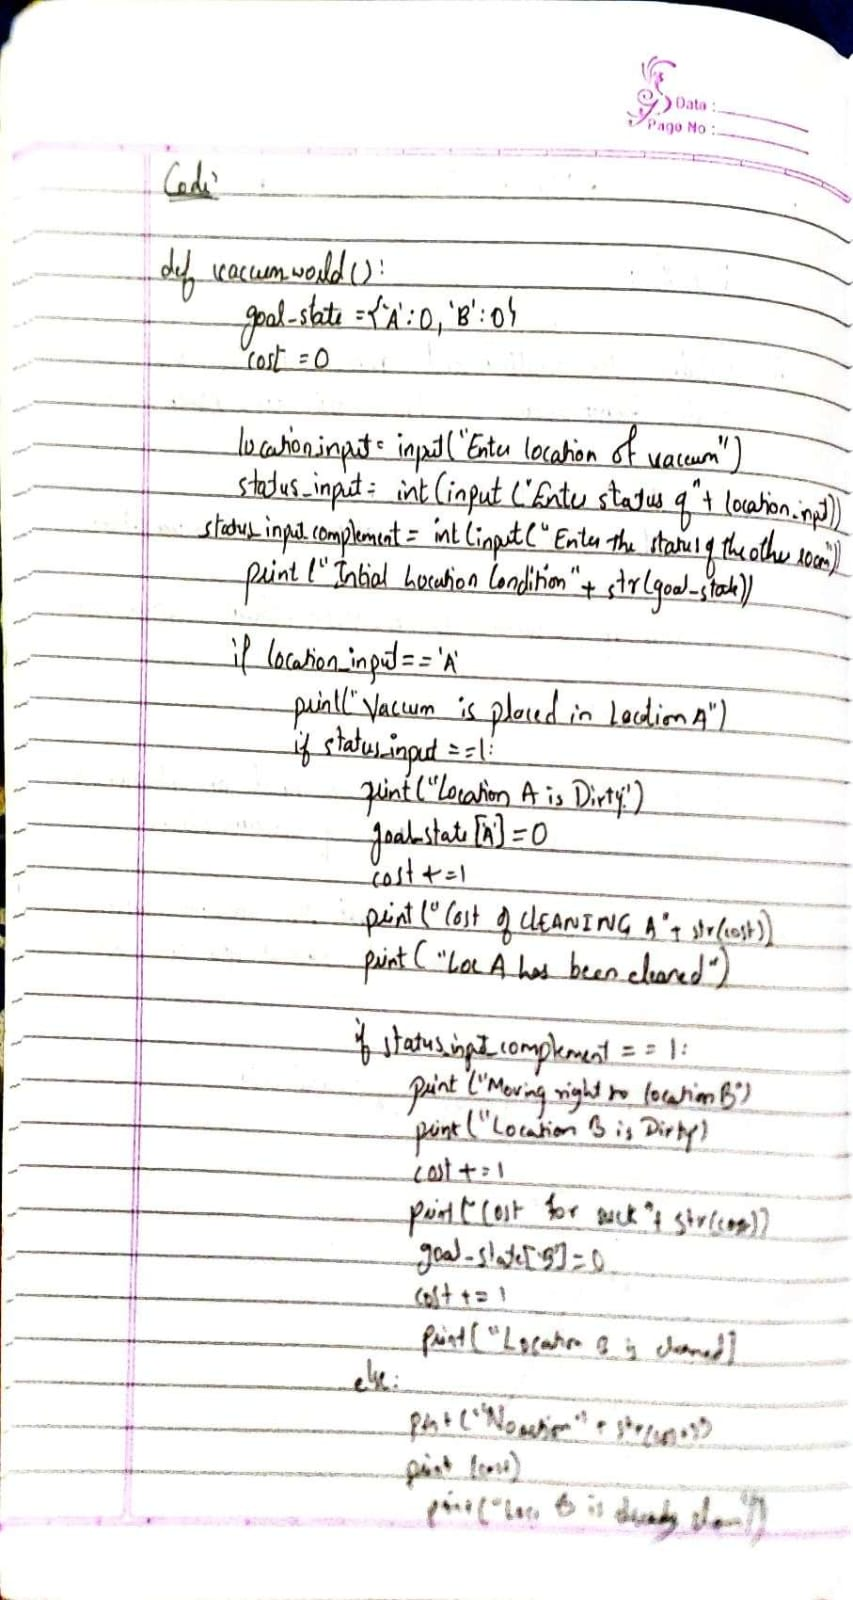 Date :
Page No :
Code:
def vaccumworld():
goal-state ={'A':0, 'B':0}
cost =0
location input= input("Enter location of vaccum")
status_input= int(input("Enter status of"+ location-input))
status_input complement= int(input("Enter the status of the other room"))
print ("Initial Location Condition"+ str(goal-state))
if location_input=='A'
print("Vaccum is placed in Location A")
if status_input ==1:
print("Location A is Dirty")
goal-state['A']=0
cost +=1
print("Cost of CLEANING A"+ str(cost))
print("Loc A has been cleaned")
if status_input_complement == 1:
print ("Moving right to location B")
print ("Location B is Dirty)
cost +=1
print("Cost for suck"+ str(cost))
goal-state['B']=0
cost +=1
print("Location B is cleaned]
else:
print("No action" + str(cost))
print (cost)
print("Loc. B is already clean")